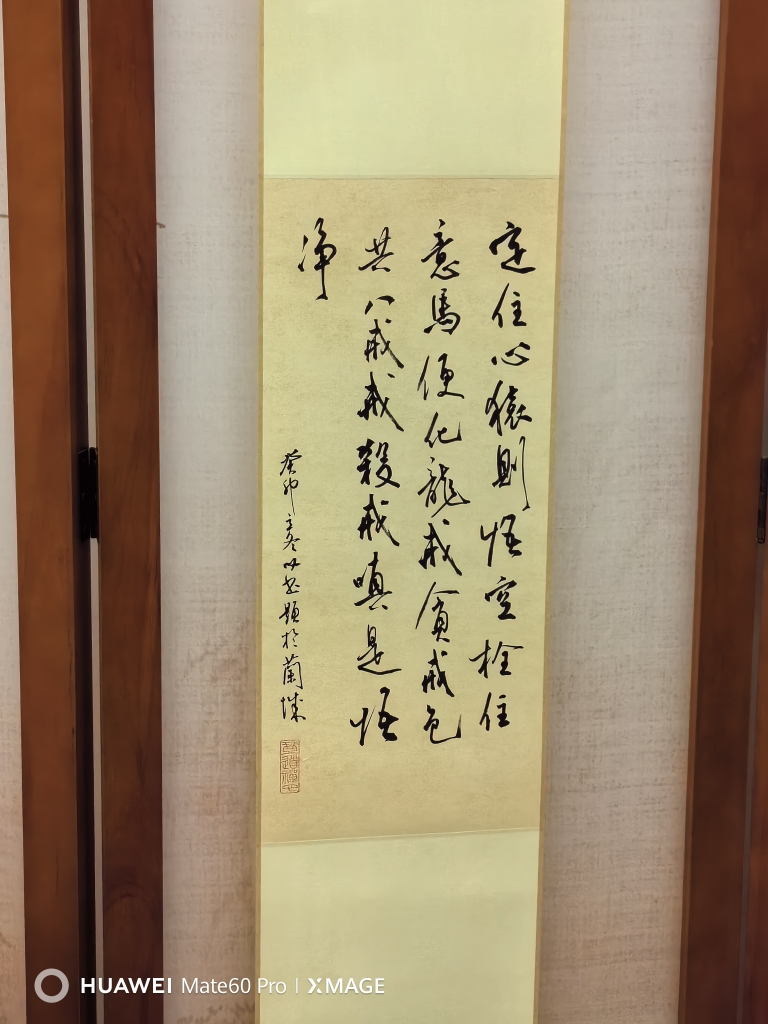 定住心猿則悟空栓住
意馬便化龍戒貪戒色
共八戒戒殺戒嗔是悟
净
癸卯
題於蘭城
HUAWEI Mate60 Pro | XMAGE